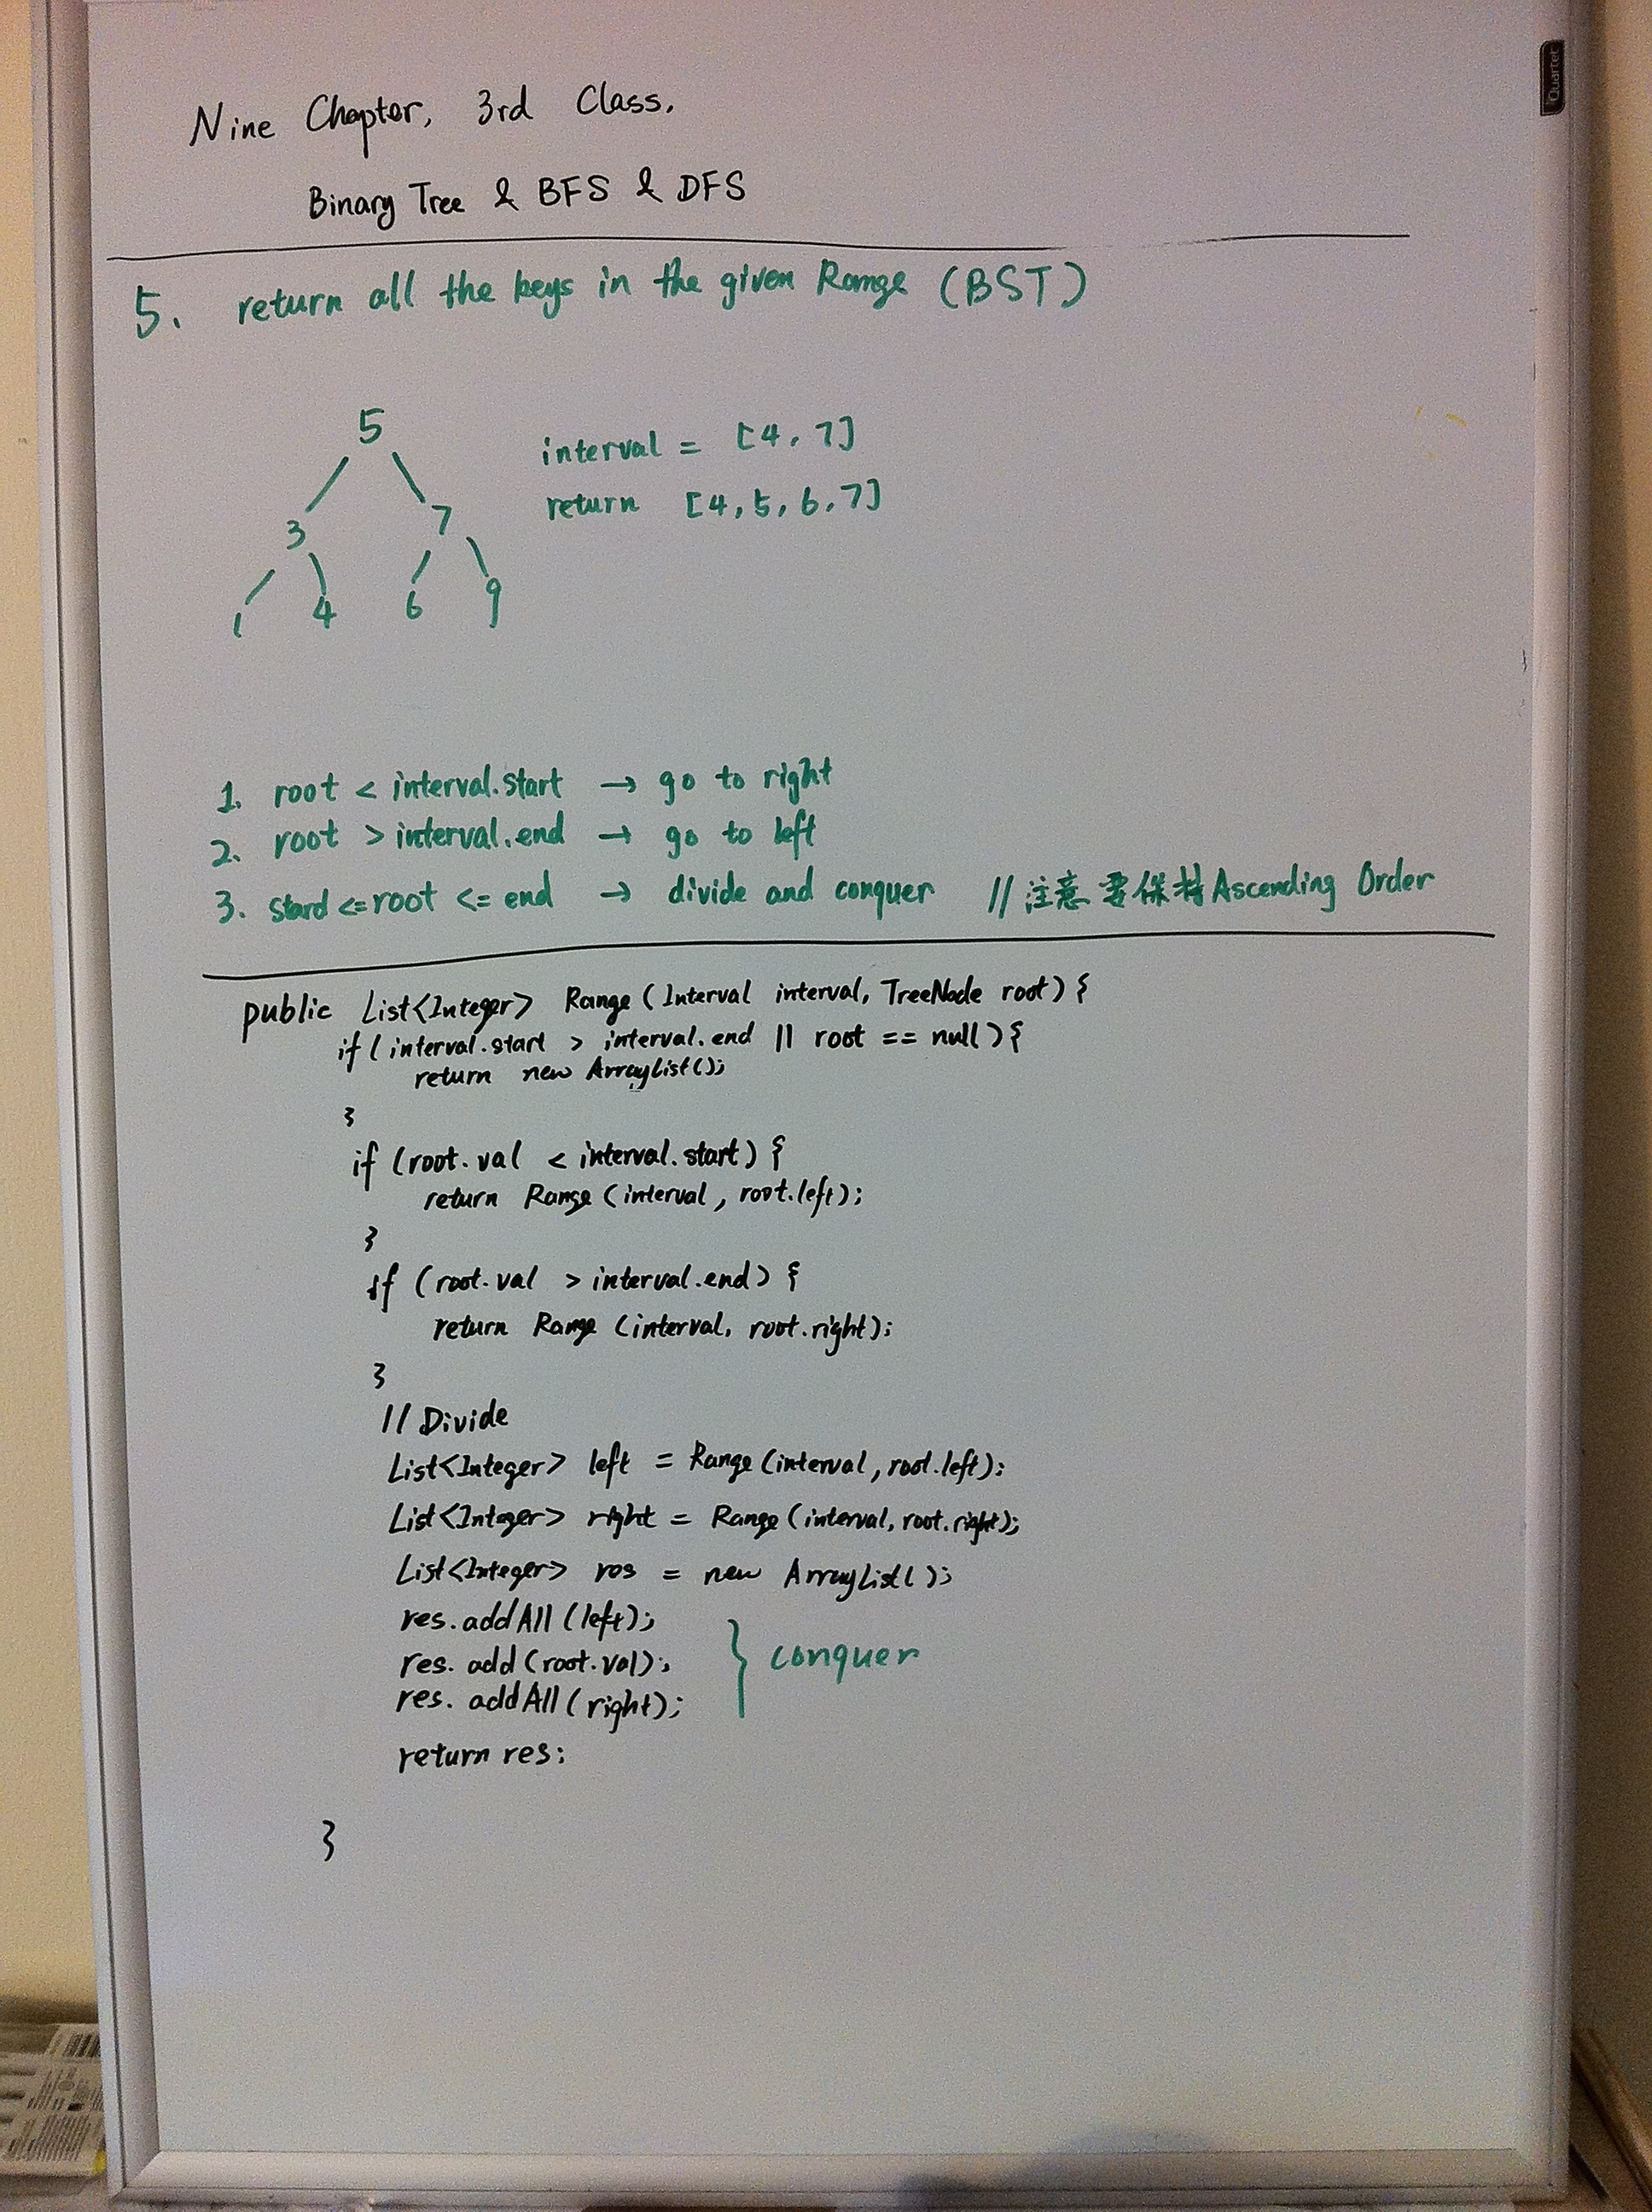 Quartet
Nine Chapter, 3rd Class.
Binary Tree & BFS & DFS
5. return all the keys in the given Range (BST)
5
interval = [4, 7]
return [4, 5, 6, 7]
3 7
1 4 6 9
1. root < interval.start → go to right
2. root > interval.end → go to left
3. stard <= root <= end → divide and conquer // 注意 要保持 Ascending Order
public List<Integer> Range (Interval interval, TreeNode root) {
if (interval.start > interval.end || root == null) {
return new ArrayList();
}
if (root.val < interval.start) {
return Range (interval, root.left);
}
if (root.val > interval.end) {
return Range (interval, root.right);
}
// Divide
List<Integer> left = Range (interval, root.left);
List<Integer> right = Range (interval, root.right);
List<Integer> res = new ArrayList();
res.addAll (left);
res. add (root.val);
res. addAll (right);
} conquer
return res;
}